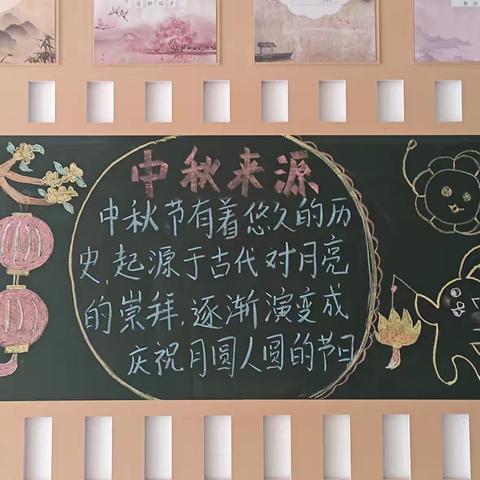 中秋来源
中秋节有着悠久的历
史,起源于古代对月亮
的崇拜,逐渐演变成
庆祝月圆人圆的节日